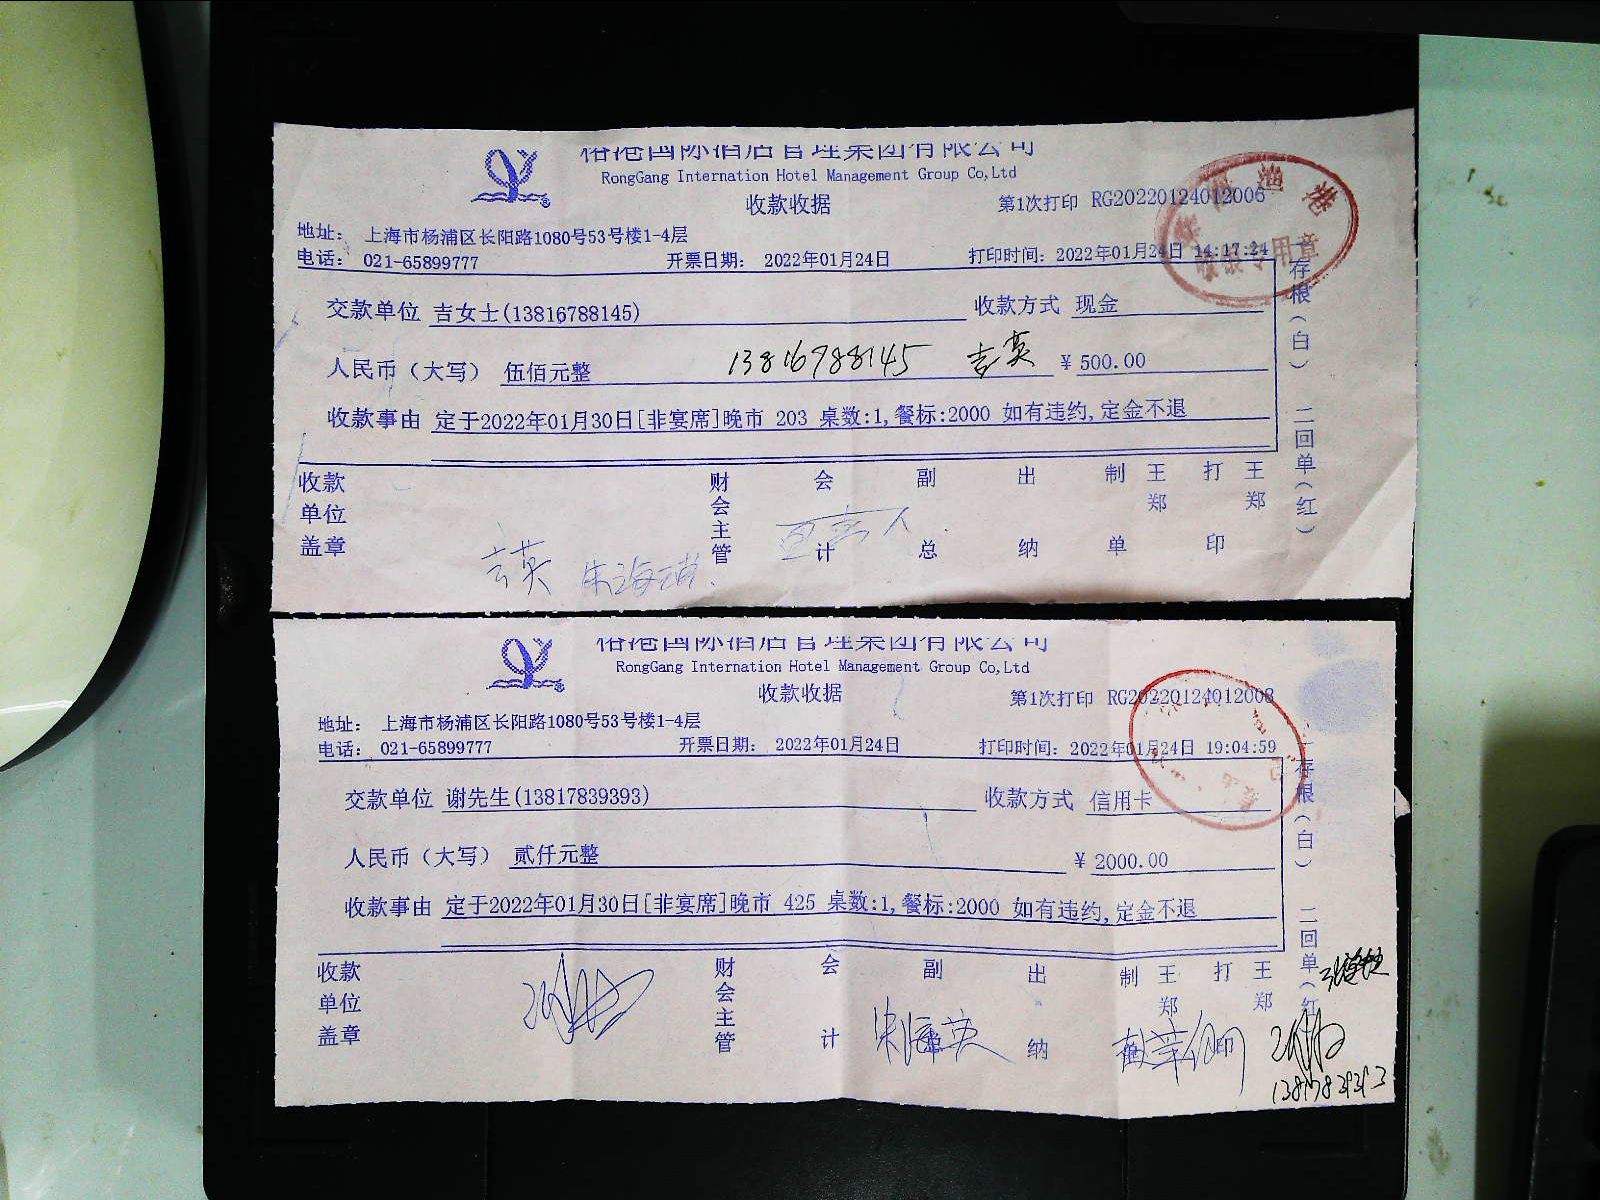 裕港国际酒店管理集团有限公司
RongGang Internation Hotel Management Group Co,Ltd
收款收据
第1次打印 RG20220124012006
地址: 上海市杨浦区长阳路1080号53号楼1-4层
电话: 021-65899777 开票日期: 2022年01月24日 打印时间: 2022年01月24日 14:17:24
交款单位 吉女士(13816788145) 收款方式 现金
人民币（大写） 伍佰元整 13816788145 吉英 ¥ 500.00
收款事由 定于2022年01月30日[非宴席]晚市 203 桌数:1,餐标:2000 如有违约,定金不退
收款单位盖章 财会主管 会计 副总 出纳 制单 王郑 打印 王郑
一存根(白) 二回单(红)
裕港国际酒店管理集团有限公司
RongGang Internation Hotel Management Group Co,Ltd
收款收据
第1次打印 RG20220124012008
地址: 上海市杨浦区长阳路1080号53号楼1-4层
电话: 021-65899777 开票日期: 2022年01月24日 打印时间: 2022年01月24日 19:04:59
交款单位 谢先生(13817839393) 收款方式 信用卡
人民币（大写） 贰仟元整 ¥ 2000.00
收款事由 定于2022年01月30日[非宴席]晚市 425 桌数:1,餐标:2000 如有违约,定金不退
收款单位盖章 财会主管 会计 副 出纳 制 王郑 打印 王郑
一存根(白) 二回单(红
13817839393